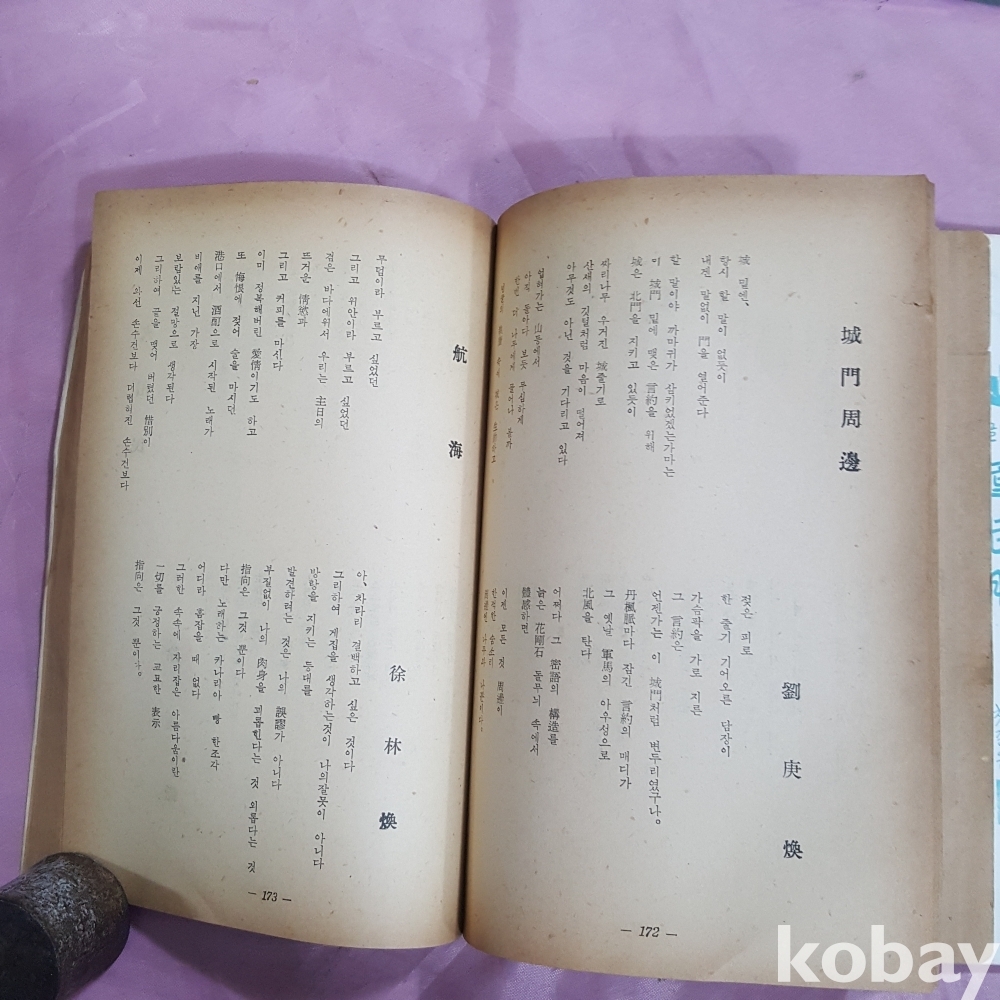 城門周邊
劉庚煥
城 밑엔、
할시 할 말이 없듯이
내겐 말없이 門을 열어준다
할 말이야 까마귀가 삼키었겠는가마는
이 城門 밑에 맺은 言約을 위해
城은 北門을 지키고 있듯이
싸리나무 우거진 城줄기로
산새의 깃털처럼 마음이 떨어져
아무것도 아닌 것을 기다리고 있다
넘어가는 山등에서
아찍 돌아다 보듯 무심하게
젖은 피로
한 줄기 기어오른 담장이
가슴팍을 가로 지른
그 言約은
언젠가는 이 城門처럼 변두리였구나。
丹楓잎마다 잠긴 言約의 매디가
그 옛날 軍馬의 아우성으로
北風을 탄다
어쩌다 그 密語의 構造를
늙은 花剛石 돌무늬 속에서
體感하면
이젠 모든 것 周邊이
한적한 숨소리
周邊엔 나무와 나뿐이다。
— 172 —
航海
徐林煥
무덤이라 부르고 싶었던
그리고 위안이라 부르고 싶었던
검은 바다에위서 우리는 主日의
뜨거운 情慾과
그리고 커피를 마신다
이미 정복해버린 愛情이기도 하고
또 悔恨에 젖어 술을 마시던
港口에서 酒酊으로 시작된 노래가
비애를 지닌 가장
보람있는 절망으로 생각된다
그리하여 굴을 맺어 버렸던 惜別이
이제 와선 손수건보다 더럽혀진 손수건보다
아、차라리 결백하고 싶은 것이다
그리하여 계집을 생각하는것이 나의잘못이 아니다
방랑을 지키는 등대를
발견하려는 것은 나의 誤謬가 아니다
부질없이 나의 肉身을 괴롭힌다는 것 외롭다는 것
指向은 그것 뿐이다
다만 노래하는 카나리아 빵 한조각
어디라 흠잡을 때 없다
그러한 속속에 자리잡은 아름다움이란
一切를 긍정하는 교묘한 表示
指向은 그것 뿐이다。
— 173 —
kobay